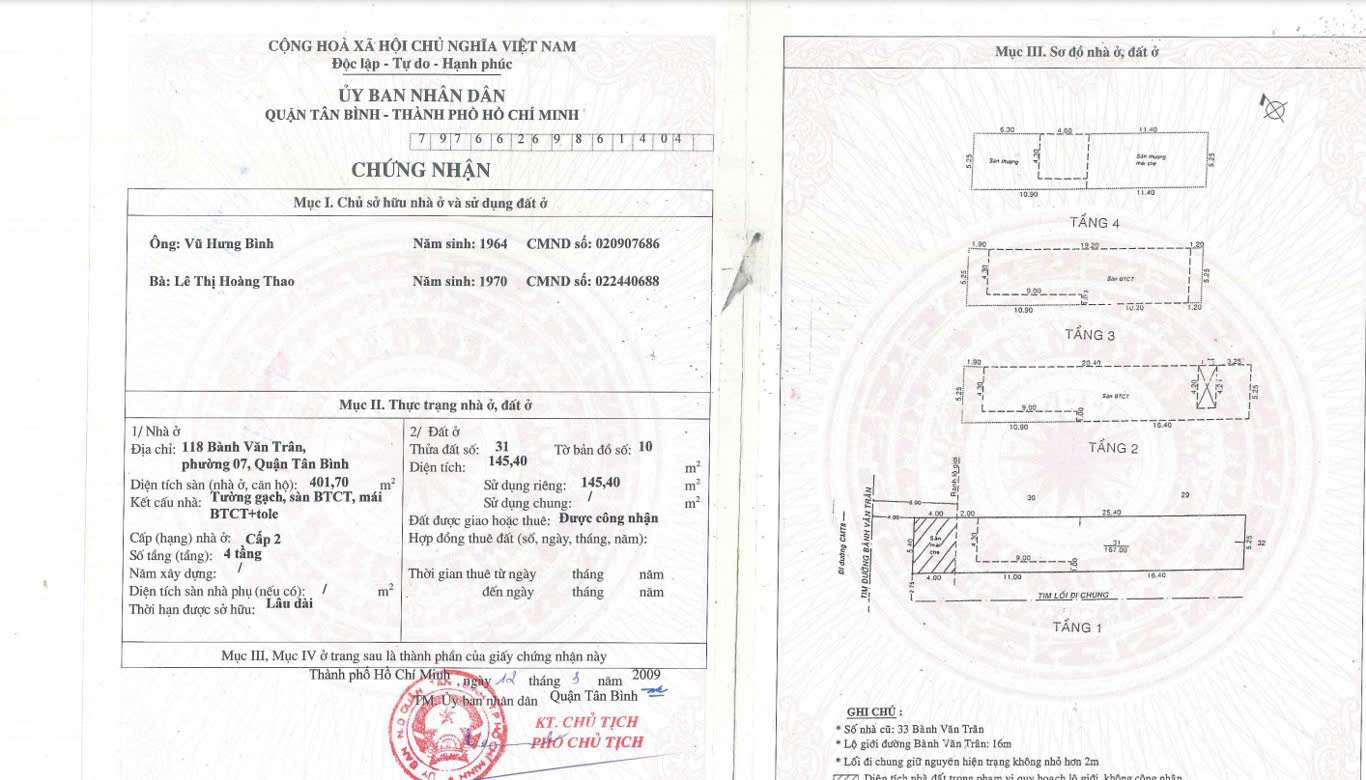 CỘNG HOÀ XÃ HỘI CHỦ NGHĨA VIỆT NAM
Độc lập - Tự do - Hạnh phúc
ỦY BAN NHÂN DÂN
QUẬN TÂN BÌNH - THÀNH PHỐ HỒ CHÍ MINH
79766269861404
CHỨNG NHẬN
Mục I. Chủ sở hữu nhà ở và sử dụng đất ở
Ông: Vũ Hưng Bình Năm sinh: 1964 CMND số: 020907686
Bà: Lê Thị Hoàng Thao Năm sinh: 1970 CMND số: 022440688
Mục II. Thực trạng nhà ở, đất ở
1/ Nhà ở
Địa chỉ: 118 Bành Văn Trân,
phường 07, Quận Tân Bình
Diện tích sàn (nhà ở, căn hộ): 401,70 m²
Kết cấu nhà: Tường gạch, sàn BTCT, mái
BTCT+tole
Cấp (hạng) nhà ở: Cấp 2
Số tầng (tầng): 4 tầng
Năm xây dựng: /
Diện tích sàn nhà phụ (nếu có): / m²
Thời hạn được sở hữu: Lâu dài
2/ Đất ở
Thửa đất số: 31 Tờ bản đồ số: 10
Diện tích: 145,40 m²
Sử dụng riêng: 145,40 m²
Sử dụng chung: / m²
Đất được giao hoặc thuê: Được công nhận
Hợp đồng thuê đất (số, ngày, tháng, năm):
Thời gian thuê từ ngày tháng năm
đến ngày tháng năm
Mục III, Mục IV ở trang sau là thành phần của giấy chứng nhận này
Thành phố Hồ Chí Minh ngày 12 tháng 3 năm 2009
TM. Ủy ban nhân dân Quận Tân Bình
KT. CHỦ TỊCH
PHÓ CHỦ TỊCH
Mục III. Sơ đồ nhà ở, đất ở
6.30 4.60 11.40
5.25 Sân thượng 4.30 Sân thượng 5.25
mái che
10.90 11.40
TẦNG 4
1.90 19.20 1.20
5.25 4.30 Sàn BTCT 5.25
9.00
10.90 10.20 1.20
TẦNG 3
1.90 20.40 3.25
5.25 4.30 Sàn BTCT 4.20 4.21 5.25
9.00 1.00
10.90 16.40
TẦNG 2
Ranh lộ giới
30 29
4.00 2.00 25.40
Đi đường CMT8
TIM ĐƯỜNG BÀNH VĂN TRÂN
5.40 Sân
mái
che
4.30 31
167.00 5.25 32
9.00 1.00
2.75 4.00 11.00 16.40
TIM LỐI ĐI CHUNG
TẦNG 1
GHI CHÚ :
* Số nhà cũ: 33 Bành Văn Trân
* Lộ giới đường Bành Văn Trân: 16m
* Lối đi chung giữ nguyên hiện trạng không nhỏ hơn 2m
Diện tích nhà đất trong phạm vi quy hoạch lộ giới, không công nhận